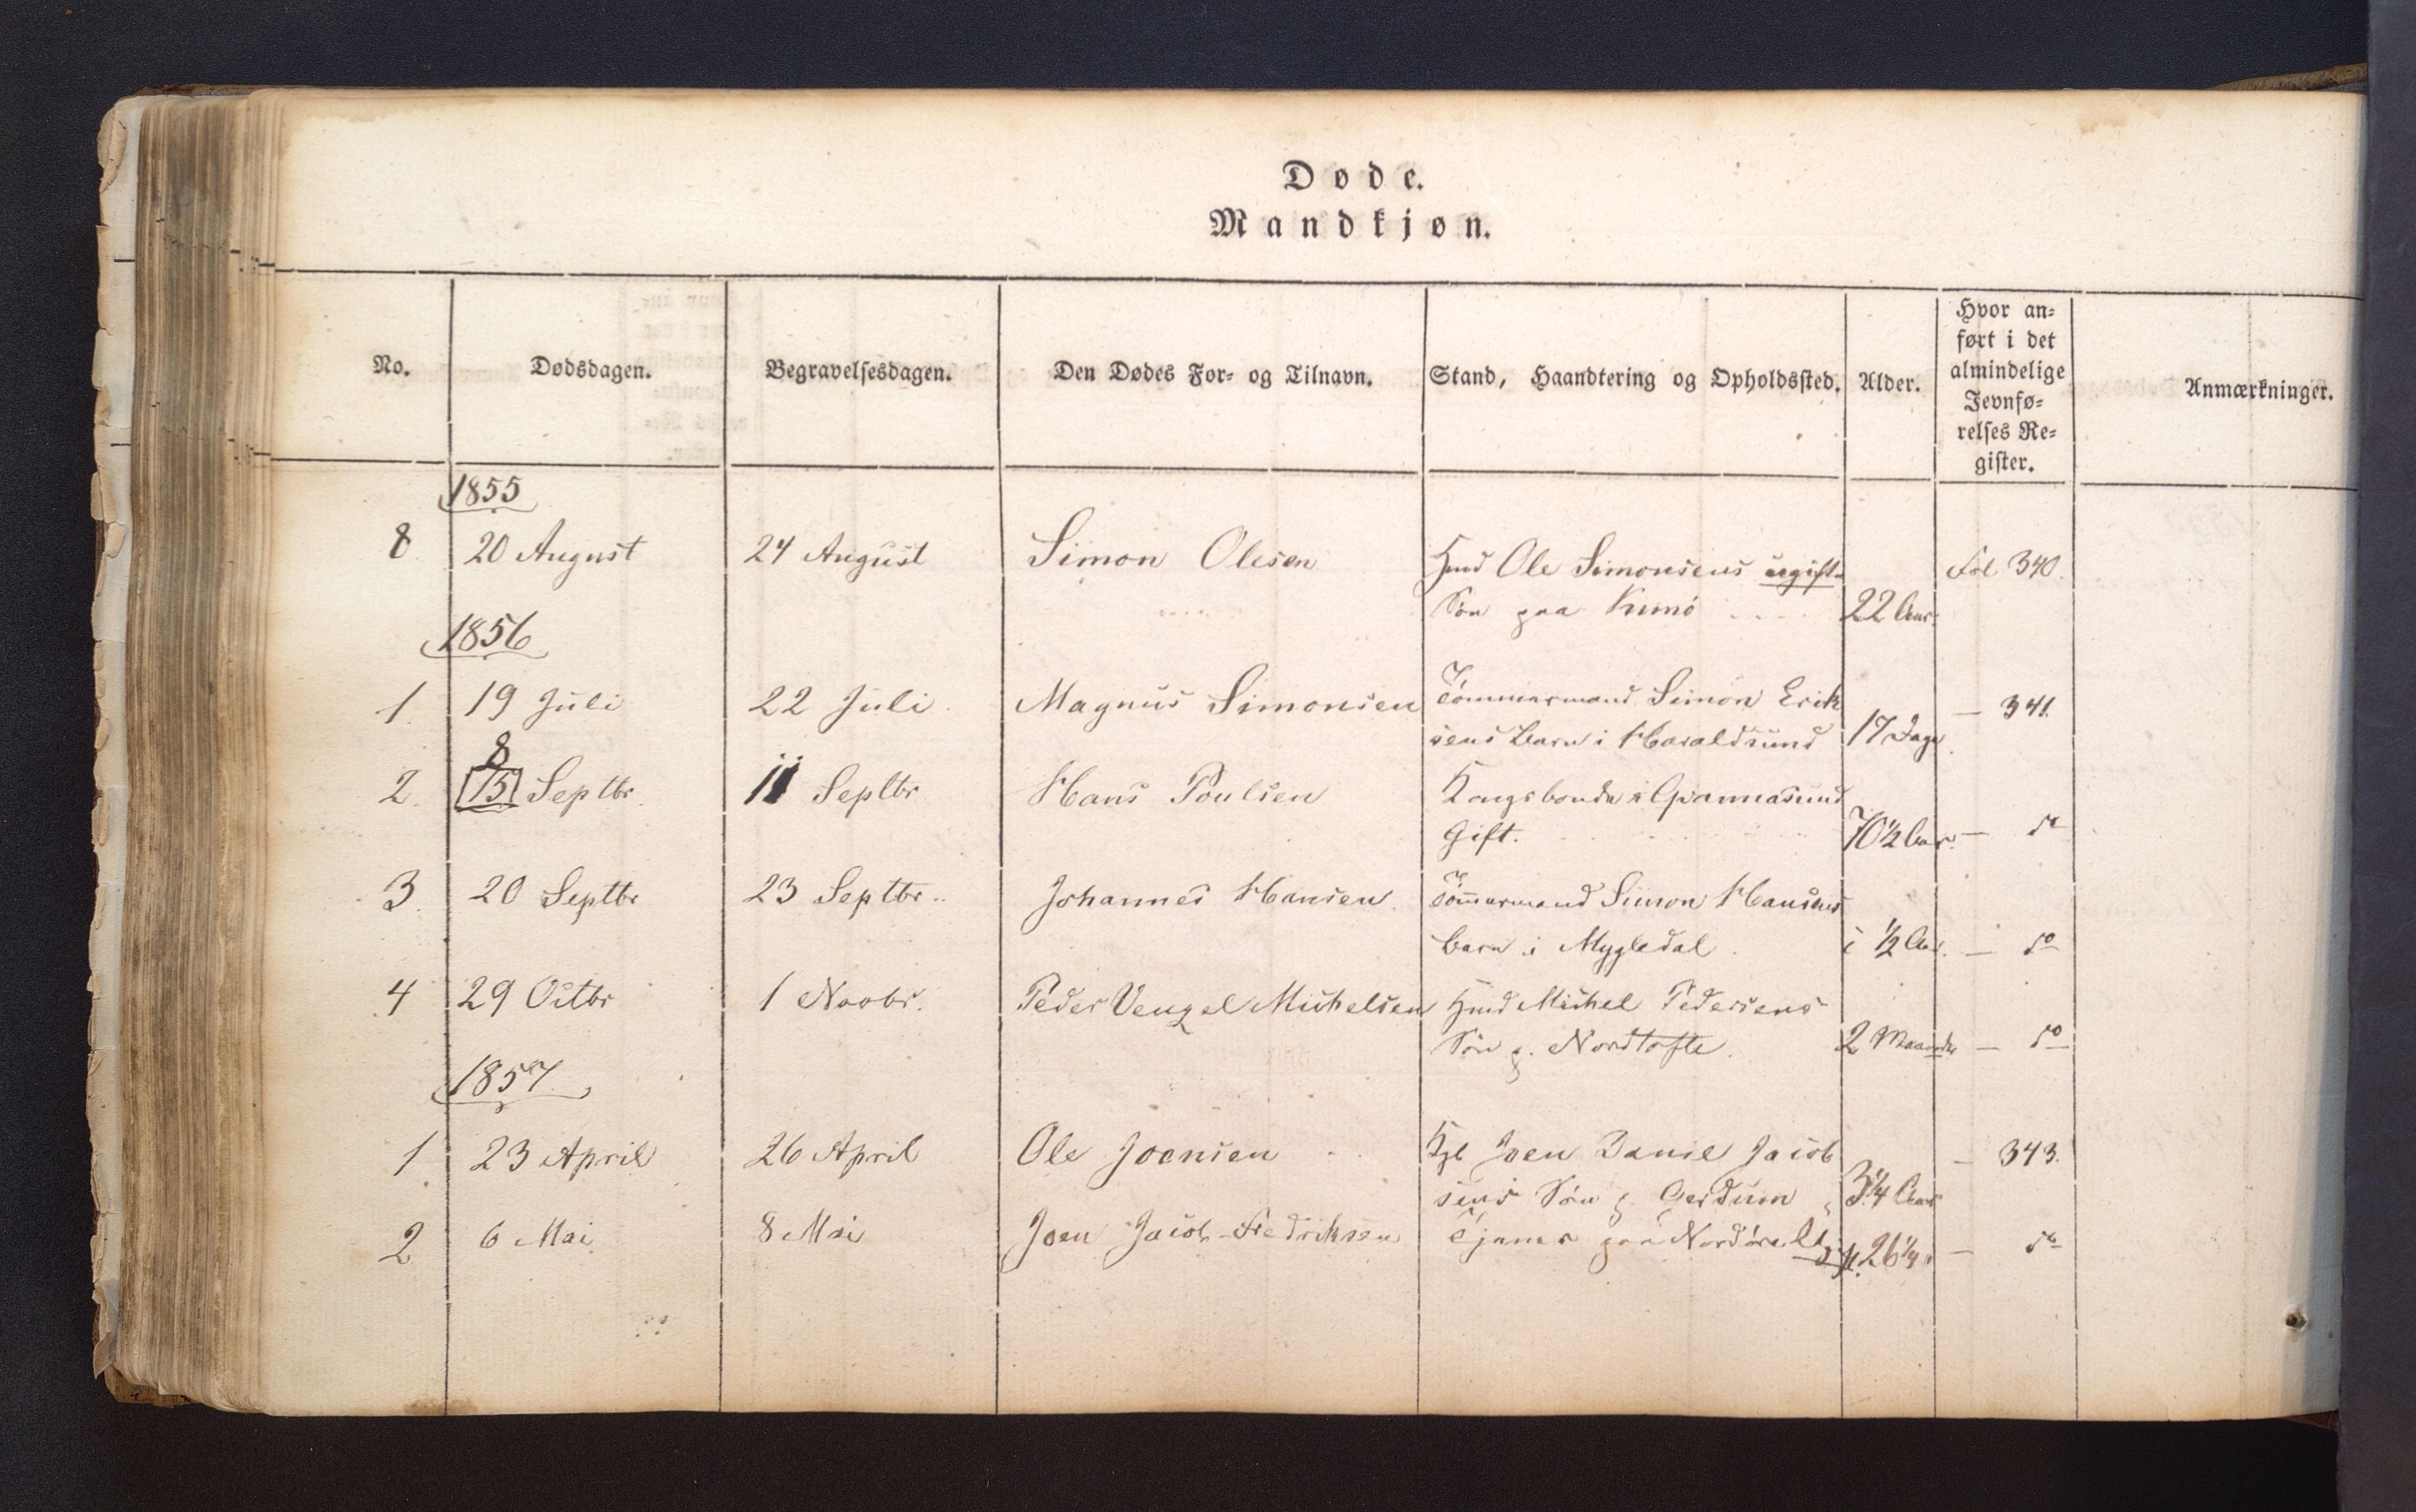 Døde.
Mandkjøn.
No. Dødsdagen. Begravelsesdagen. Den Dødes For- og Tilnavn. Stand, Haandtering og Opholdssted. Alder. Hvor an-
ført i det
almindelige
Jevnfø-
relses Re-
gister. Anmærkninger.
1855
8 20 August 24 August Simon Olesen Hmd Ole Simonsens ugift Fol. 340.
Søn paa Kunö 22 Aar.
1856
1. 19 Juli 22 Juli. Magnus Simonsen Tömmermand Simon Erik — 341.
sens barn i Haraldsund 17 Dage
8
2. 15 Septbr. 11 Septbr Hans Poulsen Kongsbonde i Qvannasund
Gift. 70½ Aar. — do
3. 20 Septbr 23 Septbr.. Johannes Hansen. Tömmermand Simon Hansens
barn i Mygledal. ½ Aar. — do
4 29 Octbr 1 Novbr. Peder Venzel Michelsen Hmd Michel Pedersens
Søn p. Nordtofte. 2 Maaneder — do
1857
1 23 April 26 April Ole Joensen Joen Daniel Jacob — 343.
sens Søn p. Gerdum 3¼ Aar
2 6 Mai 8 Mai Joen Jacob Fredriksen Tjener paa Nordöre Ugift. 26¼ — do